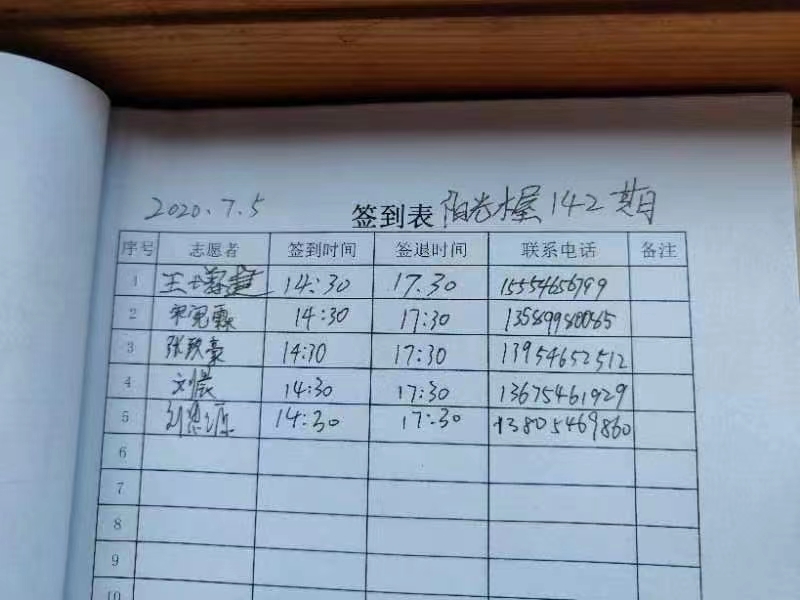 2020.7.5 签到表 阳光小屋142期
序号 志愿者 签到时间 签退时间 联系电话 备注
1 王 14:30 17.30 15554656799
2 14:30 17:30 13589980065
3 张致豪 14:30 17:30 13954652512
4 刘晨 14:30 17:30 13675461929
5 刘 源 14:30 17:30 13805469860
6
7
8
9
10